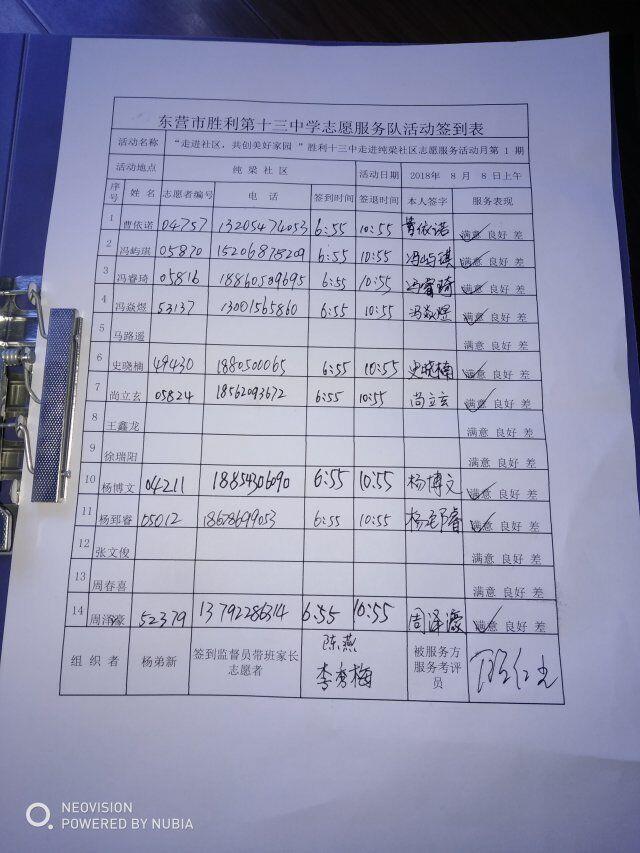 东营市胜利第十三中学志愿服务队活动签到表
活动名称 “走进社区，共创美好家园 ”胜利十三中走进纯梁社区志愿服务活动月第 1 期
活动地点 纯 梁 社 区 活动日期 2018年 8 月 8 日上午
序号 姓 名 志愿者编号 电 话 签到时间 签退时间 本人签字 服务表现
1 曹依诺 04757 13205474053 6:55 10:55 曹依诺 满意 良好 差
2 冯屿琪 05870 15206878209 6:55 10:55 冯屿琪 满意 良好 差
3 冯睿琦 05816 18860509695 6:55 10:55 冯睿琦 满意 良好 差
4 冯焱煜 53137 13001565860 6:55 10:55 冯焱煜 满意 良好 差
5 马路遥 满意 良好 差
6 史晓楠 49430 1880500065 6:55 10:55 史晓楠 满意 良好 差
7 尚立玄 05824 18562093672 6:55 10:55 尚立玄 满意 良好 差
8 王鑫龙 满意 良好 差
9 徐瑞阳 满意 良好 差
10 杨博文 04211 18854306090 6:55 10:55 杨博文 满意 良好 差
11 杨郅睿 05012 18678699053 6:55 10:55 杨郅睿 满意 良好 差
12 张文俊 满意 良好 差
13 周春喜 满意 良好 差
14 周泽濠 52379 13792286314 6:55 10:55 周泽濠 满意 良好 差
组 织 者 杨弟新 签到监督员带班家长志愿者 陈燕 李秀梅 被服务方服务考评员
NEOVISION
POWERED BY NUBIA